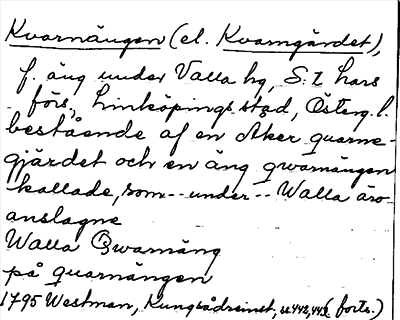 Kvarnängen (el. Kvarngärdet),
f. äng under Valla hg, S:t Lars
förs., Linköpings stad, Österg. l.
bestående af en Aker quarne-
gjärdet och en äng qwarnängen
kallade, som -- under -- Walla äro
anslagne
Walla Qwarnäng
på quarnängen
1795 Westman, Kungsådreinst, (forts.)